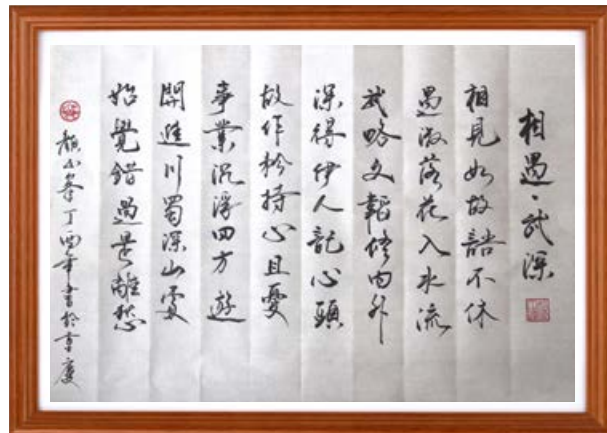 相遇·武深
相見如故語不休
遇溆落花入水流
武略文韜修内外
深得伊人記心頭
故作矜持心且憂
事業沉浮四方遊
開進川蜀深山處
始覺錯過是離愁
顏小峯丁酉年書於重慶